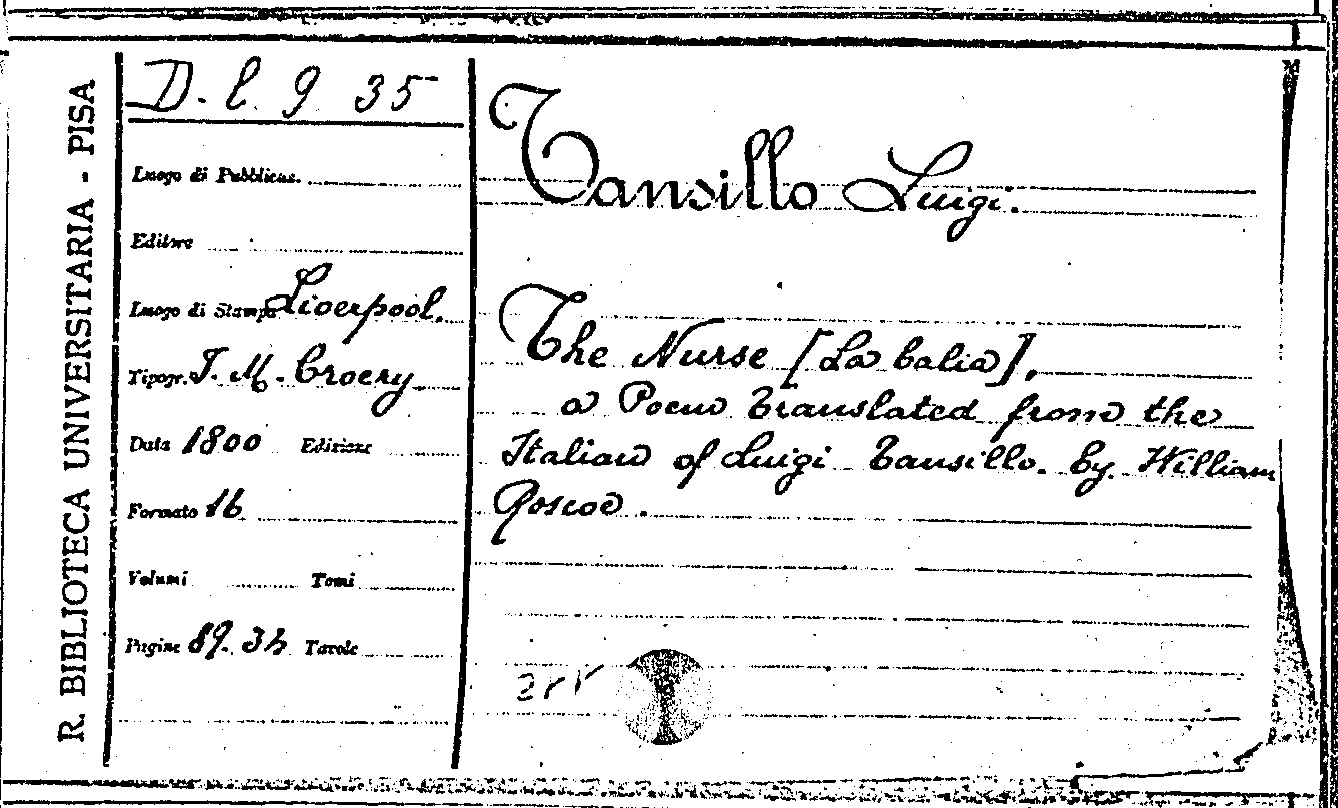 R. BIBLIOTECA UNIVERSITARIA - PISA
D. l. 9 35
Luogo di Pubblicaz.
Editore
Luogo di Stampa Liverpool.
Tipogr. J. M. Creery
Data 1800 Edizione
Formato 16
Volumi Tomi
Pagine 89. Tavole
Tansillo Luigi.
The Nurse [La balia],
a Poem translated from the
Italian of Luigi Tansillo. by William
Roscoe.